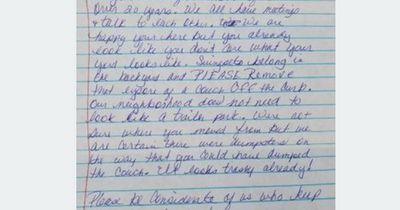 over 20 years. We all have meetings
& talk to each other. We are
happy your here but you already
look like you don't care what your
yard looks like. Swingsets belong in
the backyard and PLEASE Remove
that eyesore of a couch OFF the curb.
Our neighborhood does not need to
look like a trailer park. We're not
sure where you moved from but we
are certain there were dumpsters on
the way that you could have dumped
the couch. It looks trashy already!
Please be considerate of us who keep